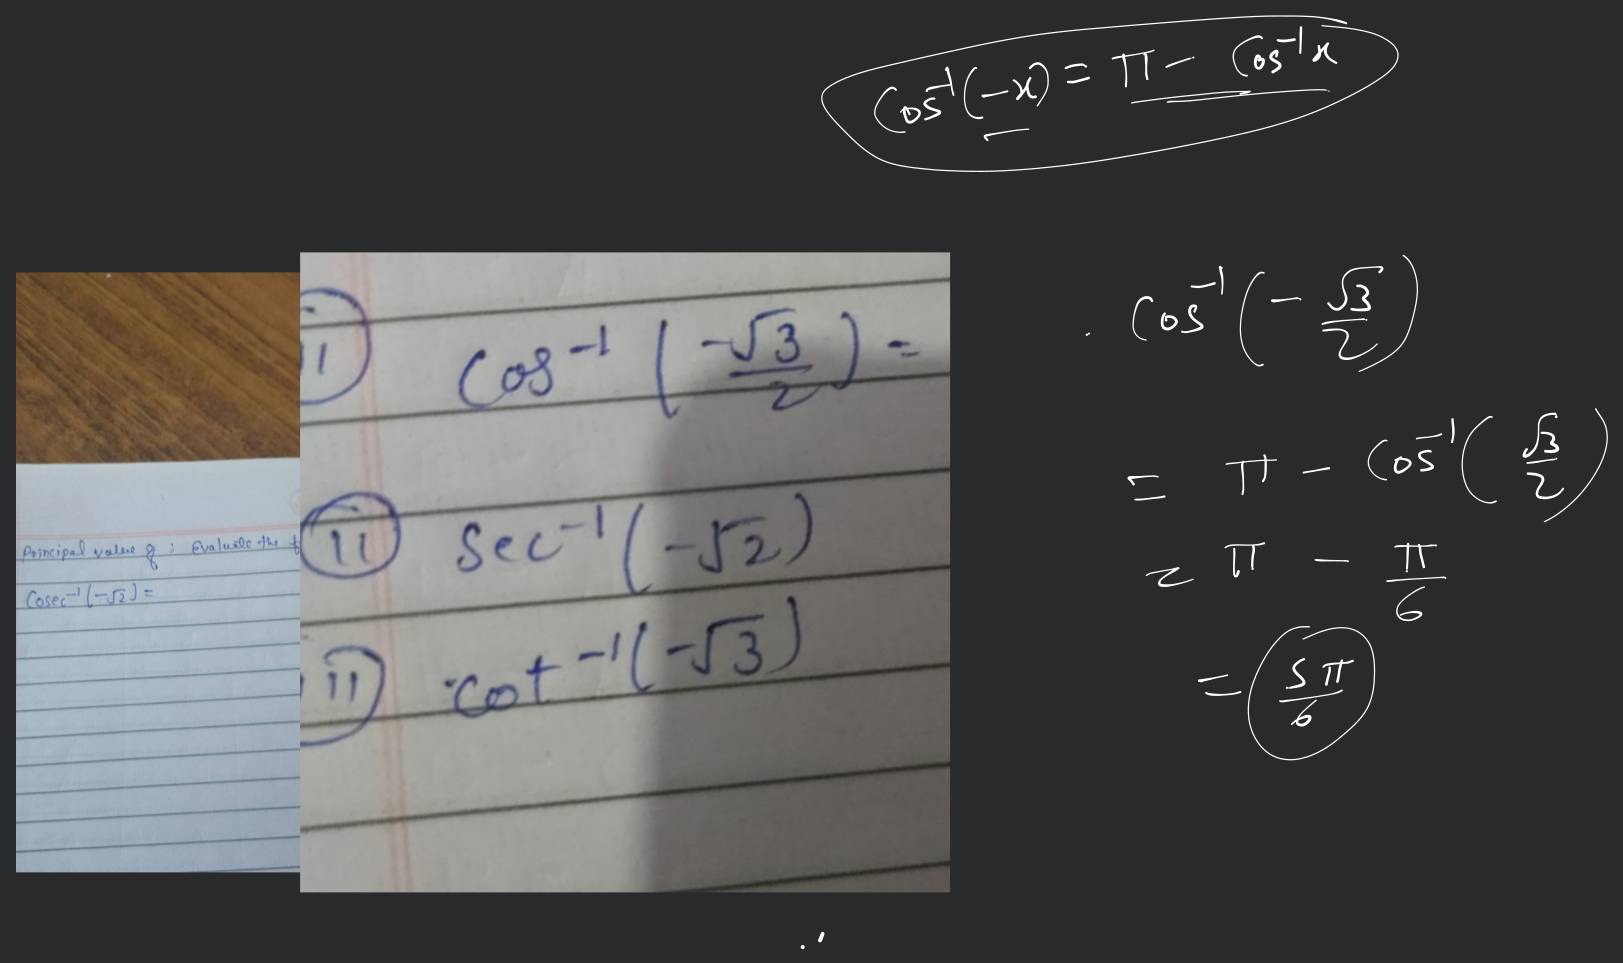 Cos⁻¹(-x) = π - Cos⁻¹x
Principal value of : Evaluate the
Cosec⁻¹(-√2) =
Cos⁻¹(-√3/2) =
ii Sec⁻¹(-√2)
cot⁻¹(-√3)
Cos⁻¹(-√3/2)
= π - Cos⁻¹(√3/2)
= π - π/6
= 5π/6